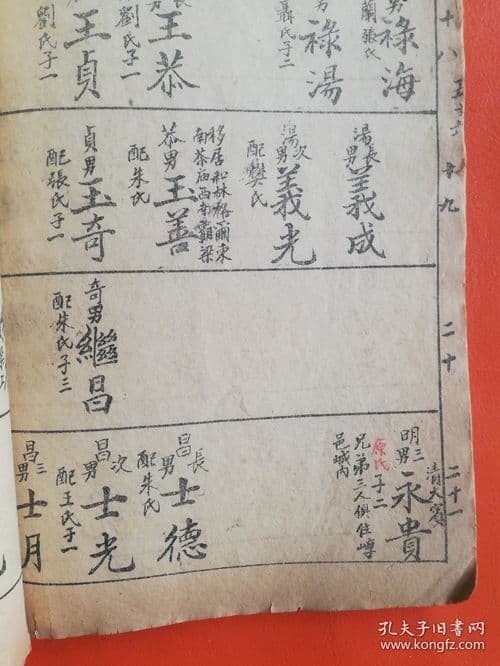 十八
男祿海
張氏
男祿湯
聶氏子二
長
王恭
劉氏子一
王貞
劉氏子一
十九
湯長男義成
湯次男義光
配樊氏
恭男玉善
配朱氏
移居和林格爾東
南茶庙西南霸梁
貞男玉奇
配張氏子一
二十
奇男繼昌
配朱氏子三
二十一
明三男永貴
原氏子二
兄弟三人俱住崞
邑城內
昌長男士德
配朱氏
昌次男士光
配王氏子一
昌三男士月
孔夫子旧书网
www.kongfz.com